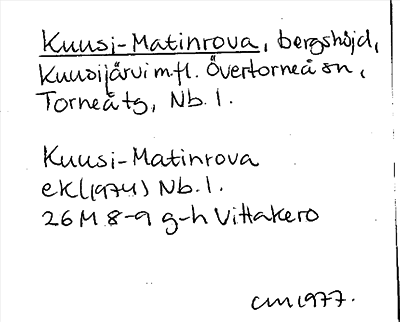 Kuusi-Matinrova, bergshöjd,
Kuusijärvi m.fl. Övertorneå sn,
Torneå tg, Nb. l.
Kuusi-Matinrova
ek (1974) Nb. l.
26M 8-9 g-h Vittakero
cm 1977.